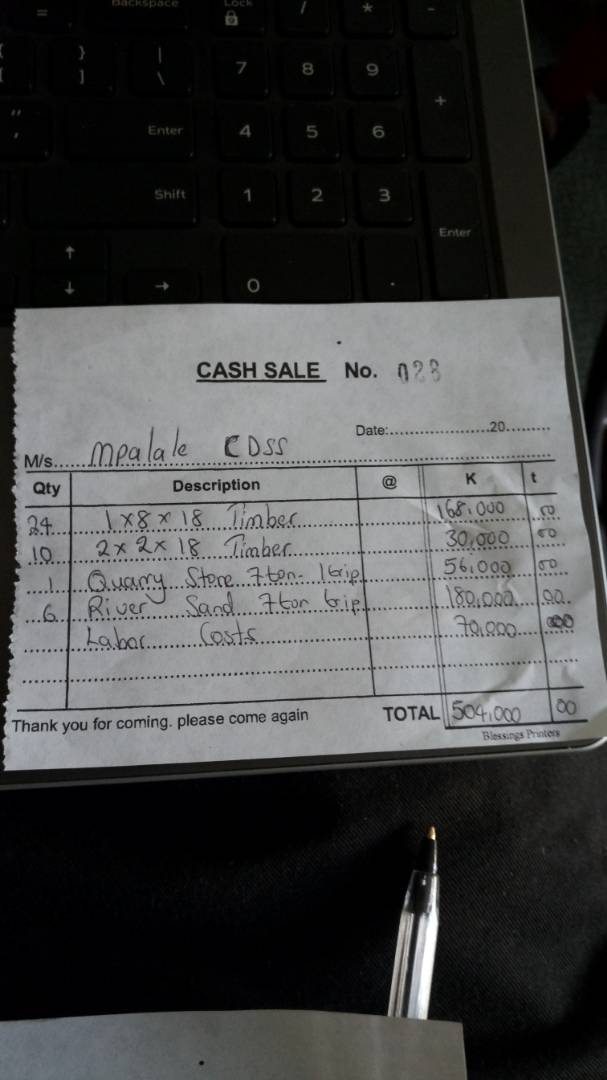 = Backspace Lock / * -
{ } |
[ ] \ 7 8 9 +
" Enter 4 5 6
'
Shift 1 2 3
Enter
↑
↓ → 0 .
CASH SALE No. 023
Date:..............................20.........
M/s.....Mpalale CDSS
Qty Description @ K t
24 1x8x18 Timber 168,000 00
10 2x2x18 Timber 30,000 00
1 Quarry Stone 7ton- 1trip 56,000 00
6 River Sand 7ton trip 180,000 00
Labor Costs 70,000
Thank you for coming. please come again TOTAL 504,000 00
Blessings Printers